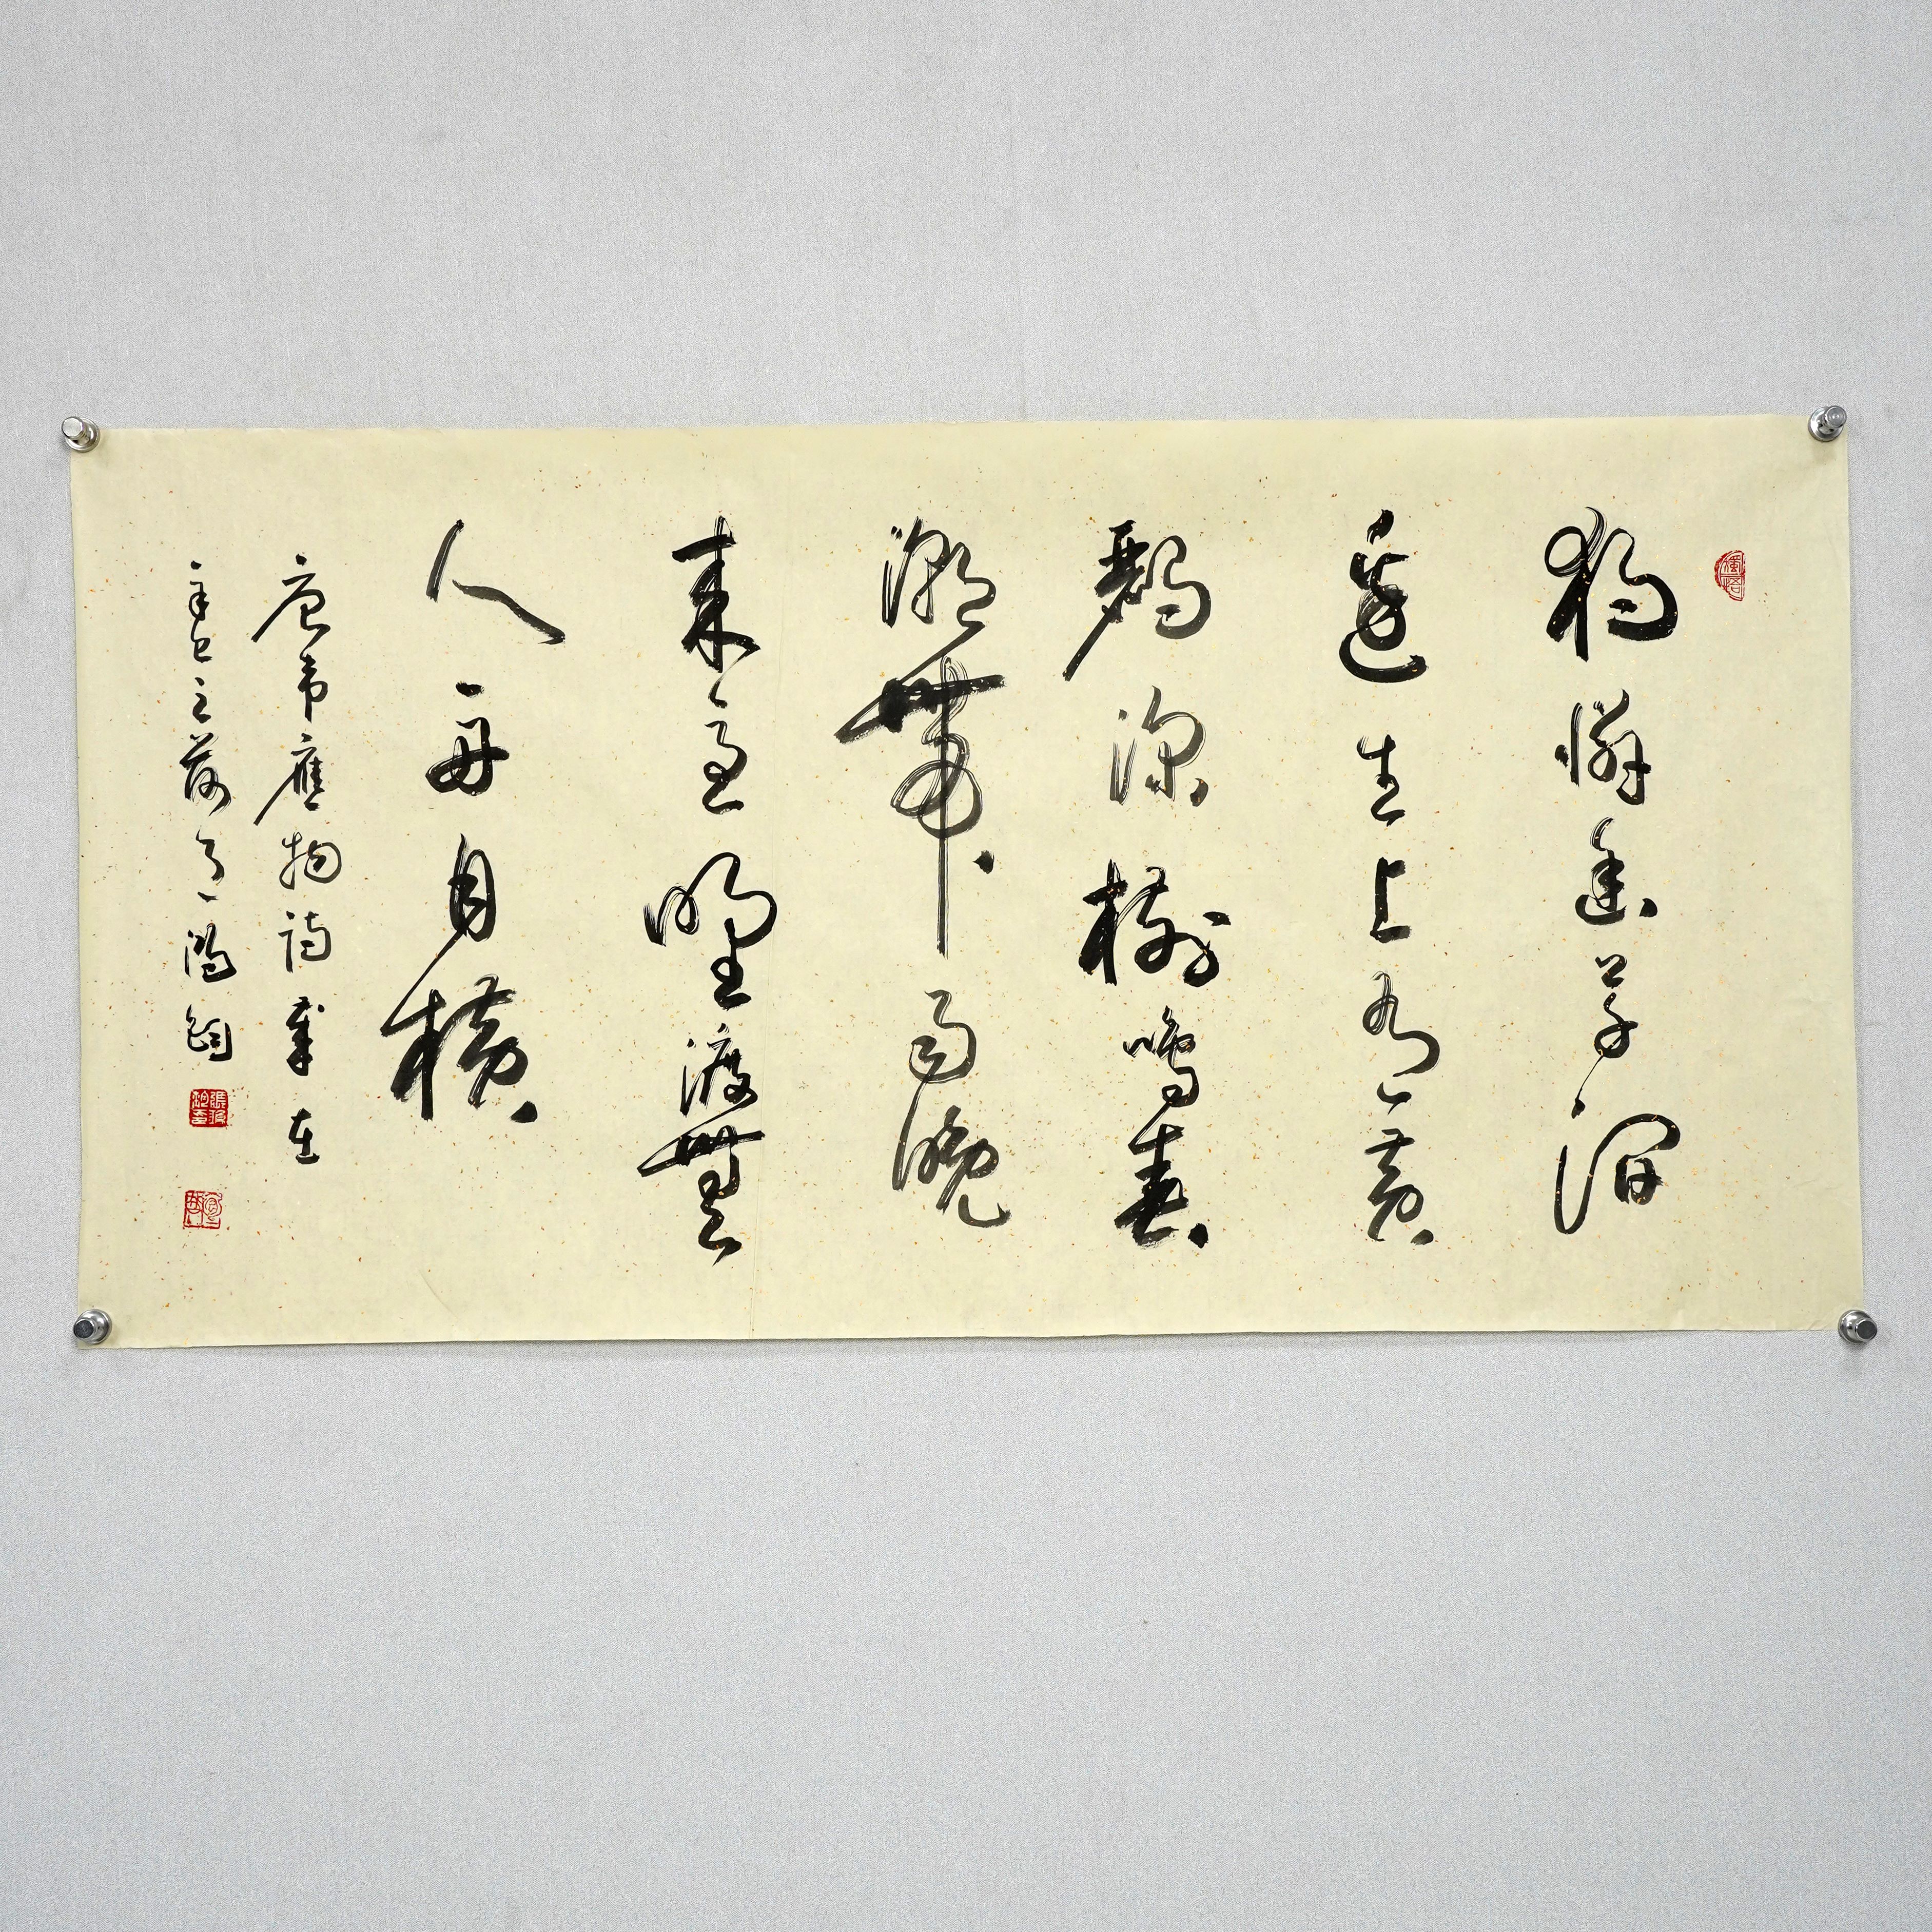 獨憐幽草澗
邊生上有黃
鸝深樹鳴春
潮帶雨晚
來急野渡無
人舟自橫
唐韋應物詩歲在
辛巳之菊月